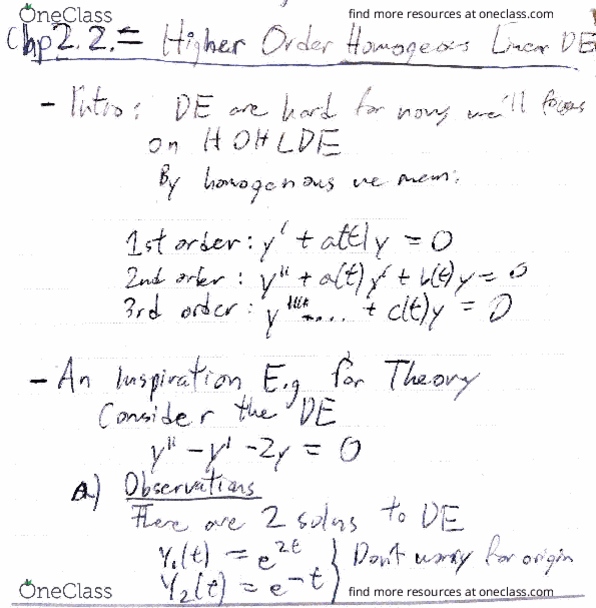 OneClass find more resources at oneclass.com
Chp 2.2.= Higher Order Homogeous Linear DE
- Intro: DE are hard for now, we'll focus
on HOHLDE
By homogenous we mean:
1st order: y' + a(t)y = 0
2nd order: y" + a(t)y' + b(t)y = 0
3rd order: y'''' .... + c(t)y = 0
- An Inspiration E.g for Theory
Consider the DE
y" - y' - 2y = 0
A) Observations
There are 2 solns to DE
Y₁(t) = e^2t } Don't worry for origin
Y₂(t) = e^-t
OneClass find more resources at oneclass.com